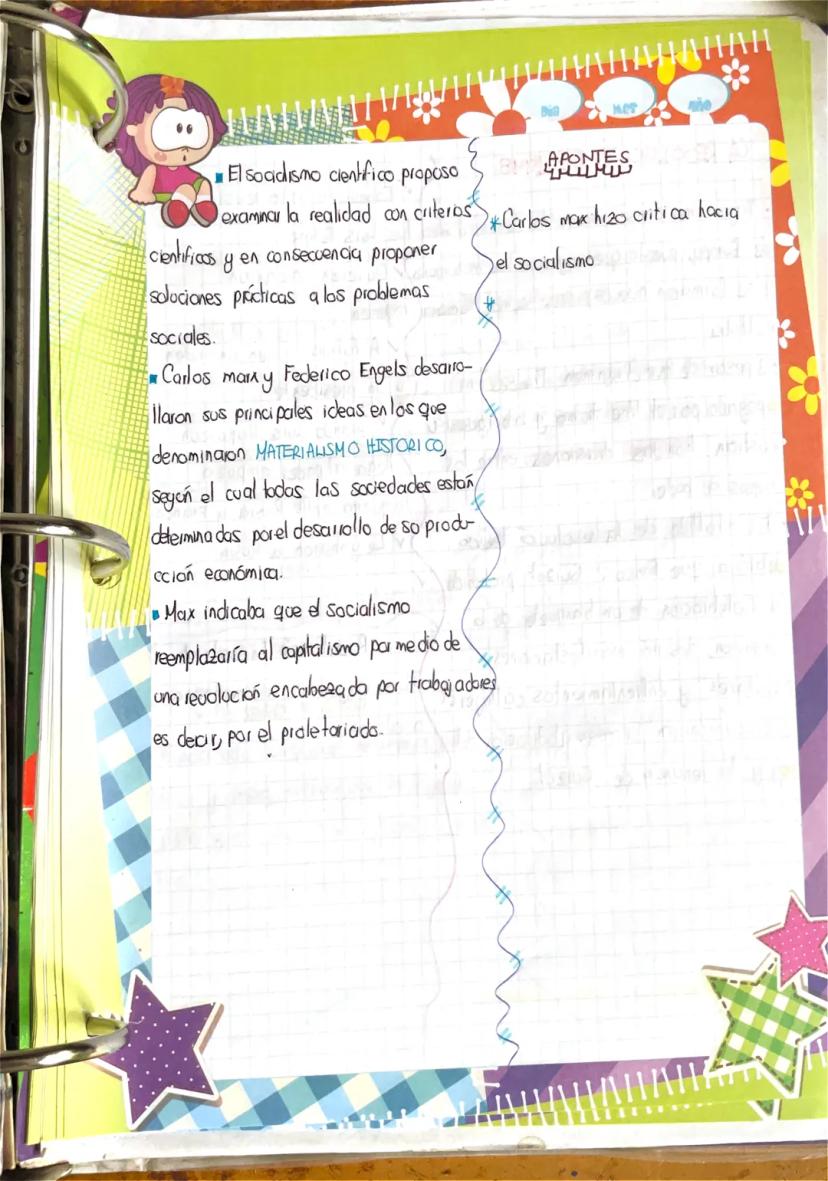 Día
Mes
Año
▪ El socialismo científico propuso
examinar la realidad con criterios
científicos y en consecuencia proponer
soluciones prácticas a los problemas
sociales.
▪ Carlos marx y Federico Engels desarro-
llaron sus principales ideas en los que
denominaron MATERIALISMO HISTORICO,
según el cual todas las sociedades están
determinadas por el desarrollo de su produ-
cción económica.
▪ Max indicaba que el socialismo
reemplazaría al capitalismo por medio de
una revolución encabezada por trabajadores
es decir, por el proletariado.
APUNTES
* Carlos max hizo critica hacia
el socialismo
*